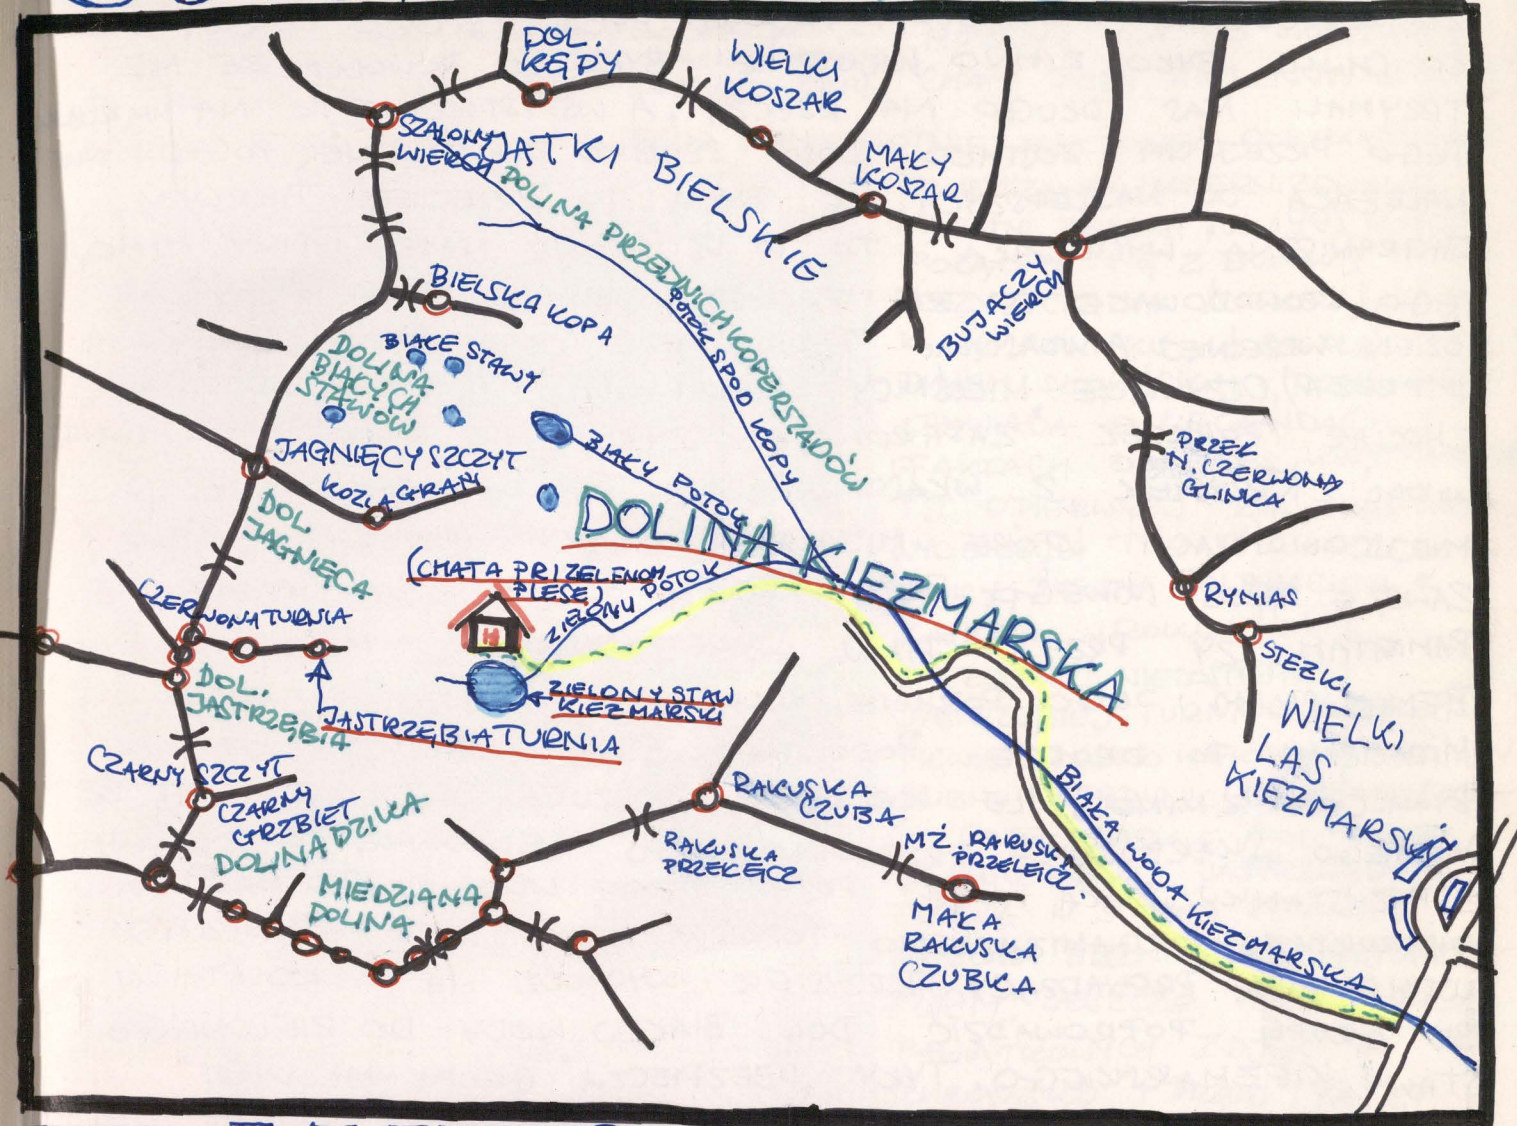 DOL.
KĘPY
WIELKI
KOSZAR
SZALONY
WIERCH
JATKI BIELSKIE
MAŁY
KOSZAR
DOLINA PRZEDNICH KOPERSZADÓW
POTOK SPOD KOPY
BUJACZY
WIERCH
BIELSKA KOPA
BIAŁE STAWY
DOLINA
BIAŁYCH
STAWÓW
BIAŁY POTOK
JAGNIĘCY SZCZYT
KOZIA GRAŃ
PRZEŁ.
CZERWONA
GLINKA
DOL.
JAGNIĘCA
DOLINA KIEŻMARSKA
(CHATA PRI ZELENOM
PLESE)
ZIELONY POTOK
CZERWONA TURNIA
RYNIAS
STEŻKI
DOL.
JASTRZĘBIA
ZIELONY STAW
KIEŻMARSKI
JASTRZĘBIA TURNIA
WIELKI
LAS
KIEŻMARSKI
CZARNY SZCZYT
CZARNY
GRZBIET
DOLINA DZIKA
RAKUSKA
CZUBA
BIAŁA WODA KIEŻMARSKA
RAKUSKA
PRZEŁĘCZ
MŻ. RAKUSKA
PRZEŁĘCZ.
MIEDZIANA
DOLINA
MAŁA
RAKUSKA
CZUBKA
H